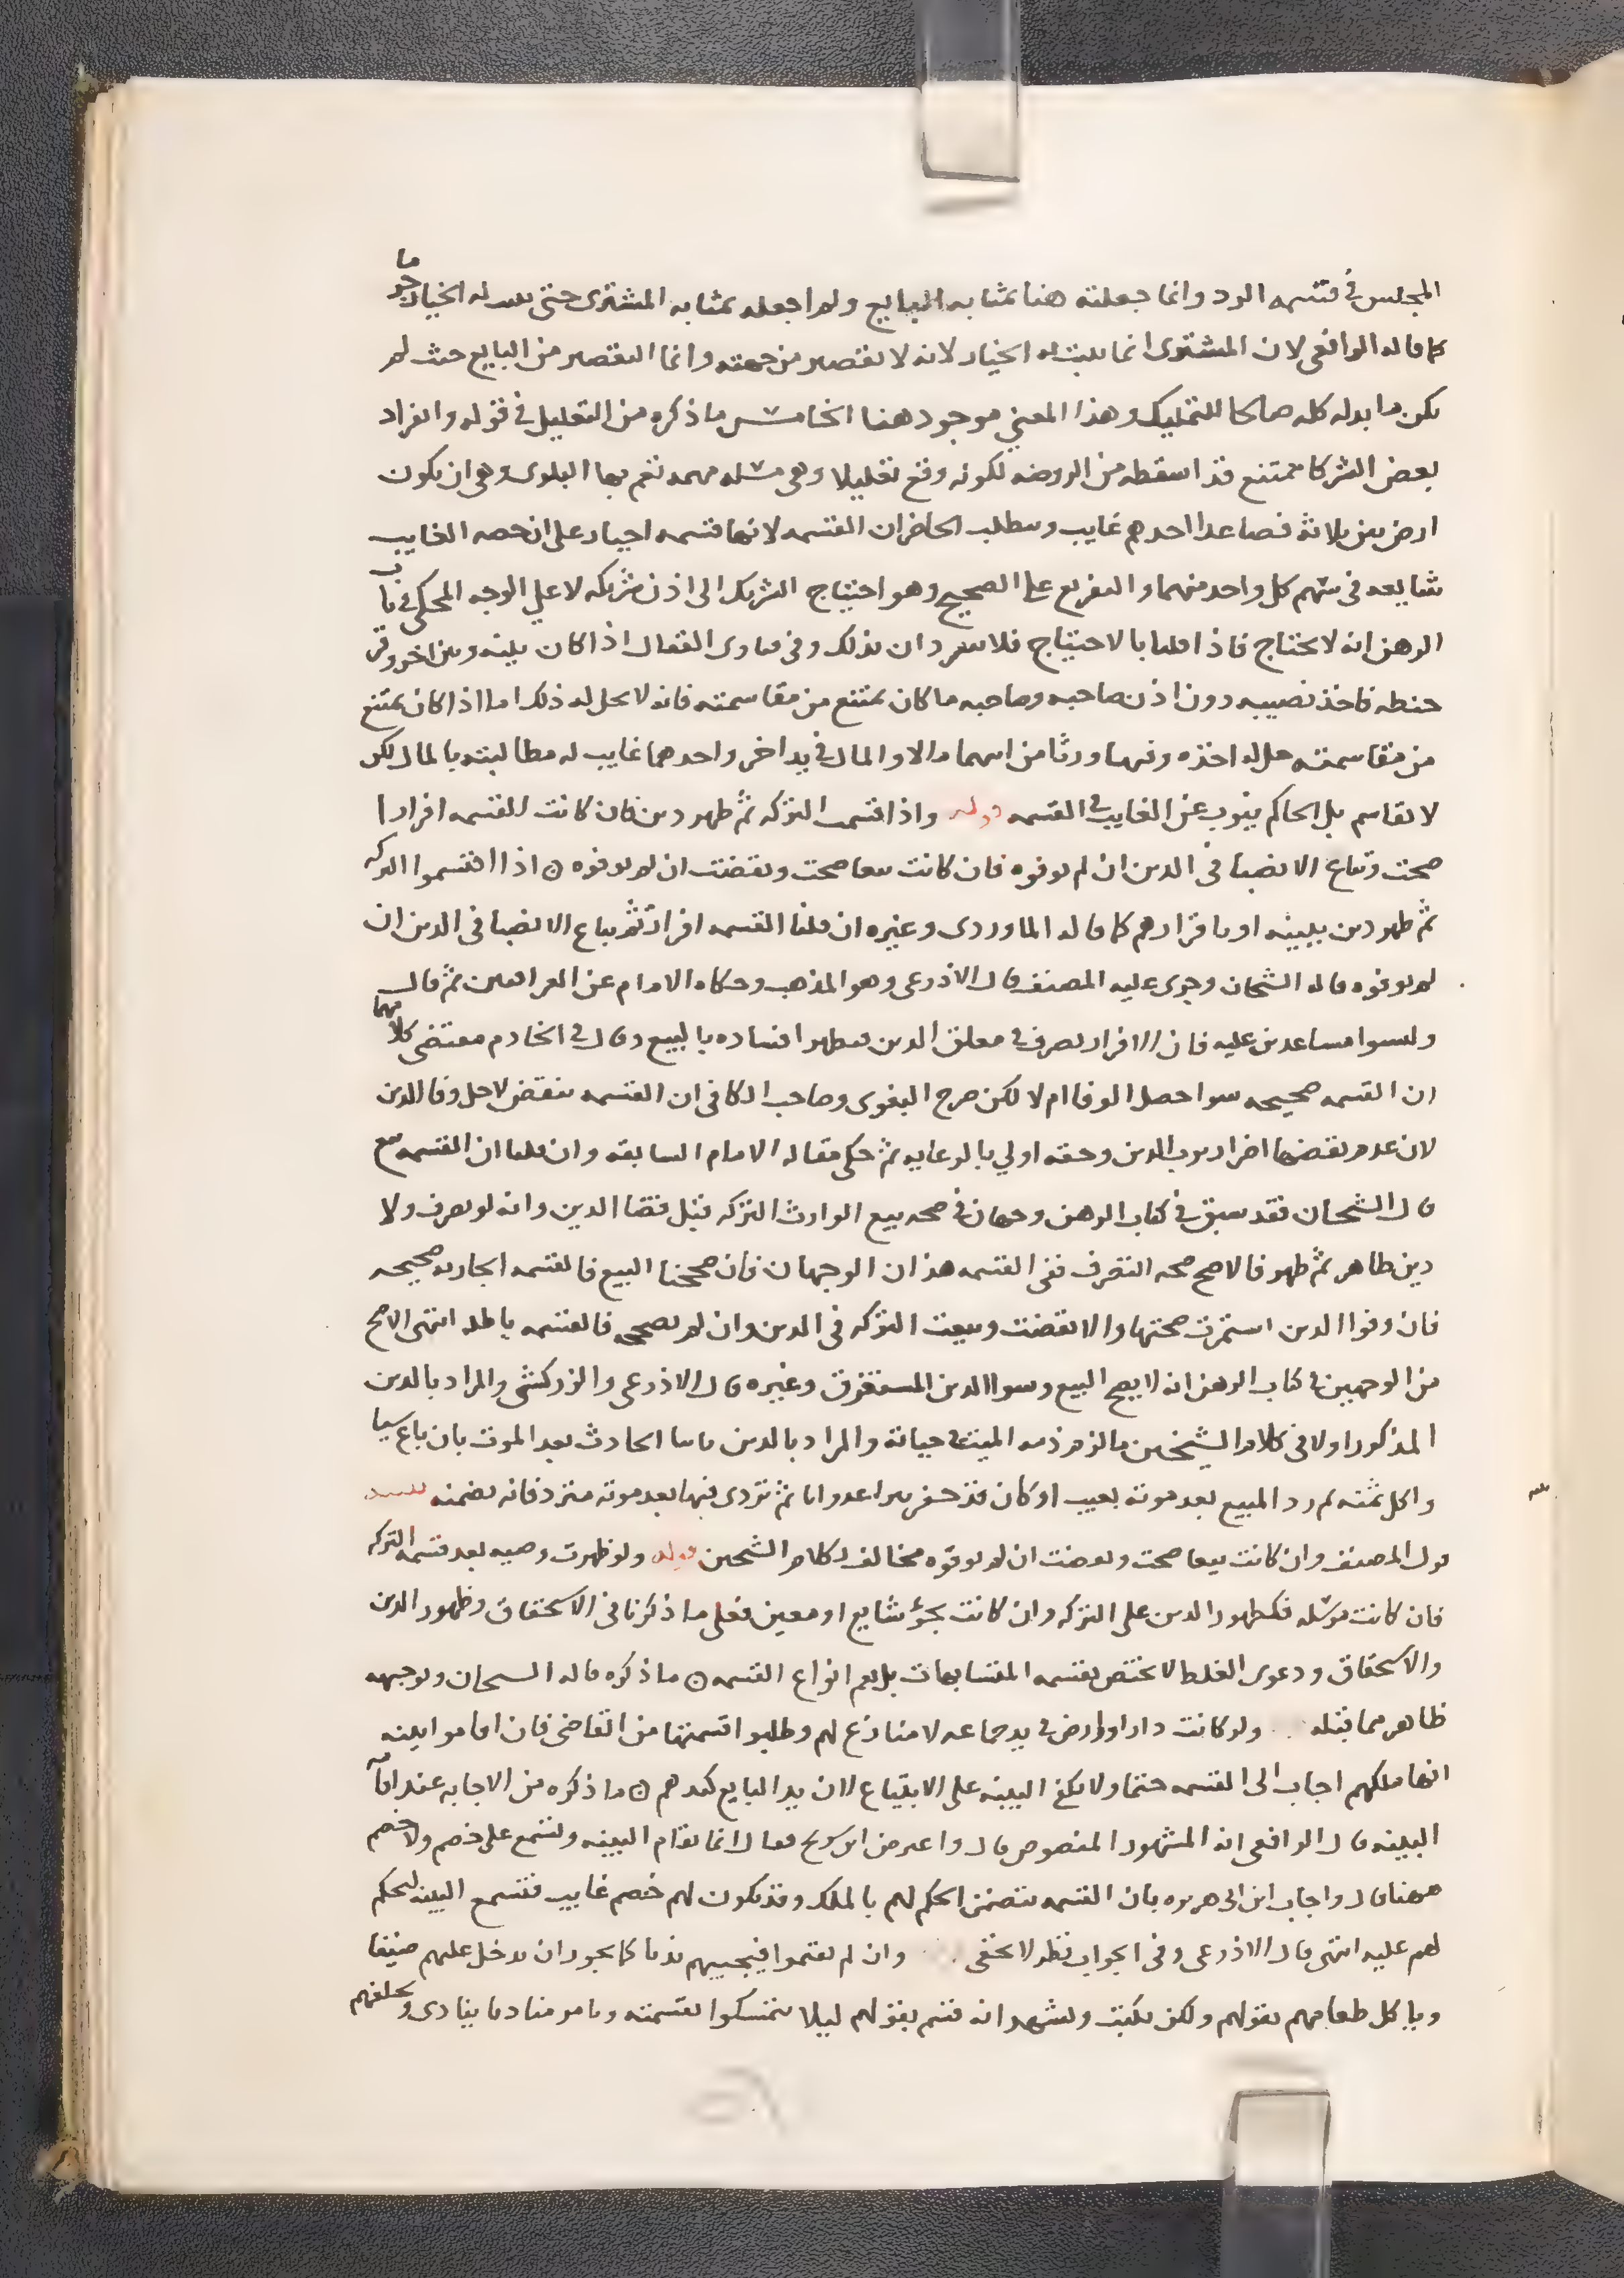 المجلس في قسمه الرد وانما جعلته هنا بمثابه البايع ولم اجعله بمثابه المشتري حتى يثبت له الخيار
كما قاله الرافعي لان المشتري انما يثبت له الخيار لانه لا تقصير من جهته وانما التقصير من البايع حيث لم
يكن ما بدله كله صالحا للتمليك وهذا المعني موجود هنا الخامس ما ذكره من التعليل في قوله وانفراد
بعض الشركا ممتنع قد اسقطه من الروضه لكونه وقع تعليلا وهي مسله مهمه تعم بها البلوى وهي ان يكون
ارض بين ثلاثة فصاعدا احدهم غايب وسطلب الحاضران القسمه لانها قسمه اجبار على ان حصه الغايب
شايعه في سهم كل واحد منهما والتفريع على الصحيح وهو احتياج الشريك الى اذن شريكه لا علي الوجه المحكي في باب
الرهن انه لا يحتاج فاذا قلنا بالاحتياج فلا ينفردان بذلك وفي فتاوى القفال اذا كان بينه وبين اخر وقر
حنطه فاخذ نصيبه دون اذن صاحبه وصاحبه ما كان يمتنع من مقاسمته فانه لا يحل له ذلك اما اذا كان يمتنع
من مقاسمته حل له اخذه وفيها ورثا من ابيهما مالا والمال في يد اخر واحدهما غايب له مطالبته بالمال لكن
لا يقاسم بل الحاكم ينوب عن الغايب في القسمه قوله واذا اقتسمت التركه ثم ظهر دين فان كانت القسمه افرازا
صحت وتباع الانصبا في الدين ان لم يوفوه فان كانت بيعا صحت ونقضت ان لم يوفوه ه اذا اقتسموا التركه
ثم ظهر دين ببينه او باقرارهم كما قاله الماوردى وغيره ان قلنا القسمه افراز ثم يباع الانصبا في الدين ان
لم يوفوه قاله الشيخان وجرى عليه المصنف قال الاذرعي وهو المذهب وحكاه الامام عن العراقيين ثم قال
وليسوا مساعدين عليه فان الافراز تصرف في معلق الدين فيظهر افساده بالبيع وقال في الخادم مقتضى كلامهما
ان القسمه صحيحه سوا حصل الوفا ام لا لكن صرح البغوى وصاحب الكافي ان القسمه تنقض لاجل وفا الدين
لان عدم نقضها اضرار برب الدين وحقه اولي بالرعايه ثم حكى مقاله الامام السابقه وان قلنا ان القسمه بيع
قال الشيخان فقد سبق في كتاب الرهن وجهان في صحه بيع الوارث التركه قبل قضا الدين وانه لو تصرف ولا
دين ظاهر ثم ظهر فالاصح صحه التصرف ففي القسمه هذان الوجهان فان صححنا البيع فالقسمه الجاريه صحيحه
فان وفوا الدين استمرت صحتها والا نقضت وبيعت التركه في الدين وان لم نصححه فالقسمه باطله انتهى الاصح
من الوجهين في كتاب الرهن انه لا يصح البيع وسوا الدين المستغرق وغيره قال الاذرعى والزركشي والمراد بالدين
المذكور اولا في كلام الشيخين ما لزم ذمه الميت في حياته والمراد بالدين ثانيا الحادث بعد الموت بان باع شيا
واكل ثمنه ثم رد المبيع بعد موته بعيب او كان قد حفر بيرا عدوانا ثم تردى فيها بعد موته متردفانه يضمنه
قول المصنف وان كانت بيعا صحت ونقضت ان لم يوفوه مخالف لكلام الشيخين قوله ولو ظهرت وصيه بعد قسمه التركه
فان كانت مرسله فكظهور الدين على التركه وان كانت بجزء شايع او معين فعلى ما ذكرنا في الاستحقاق وظهور الدين
والاستحقاق ودعوى الغلط لا يختص بقسمه المتشابهات بل يعم انواع القسمه ه ما ذكره قاله الشيخان وتوجيهه
ظاهر مما قبله ولو كانت دار او ارض في يد جماعه لا منازع لهم وطلبوا قسمتها من القاضي فان اقاموا بينه
انها ملكهم اجاب الى القسمه حتما ولا يكفي البينه على الابتياع لان يد البايع كيدهم ه ما ذكره من الاجابه عند اقامه
البينه قال الرافعي انه المشهور المنصوص قال واعترض ابن سريج فقال انما تقام البينه وتسمع على خصم ولا خصم
ههنا قال واجاب ابن ابي هريره بان القسمه تتضمن الحكم لهم بالملك وقد يكون لهم خصم غايب فتسمع البينه ليحكم
لهم عليه انتهى قال الاذرعى وفي الجواب نظر لا يخفى وان لم يقيموا فيجيبهم ندبا كما يجوز ان يدخل عليهم ضيفا
وياكل طعامهم بقولهم ولكن يكتب ويشهد انه قسم بقولهم ليلا يتمسكوا بقسمته ويامر مناديا ينادى ويحلفهم